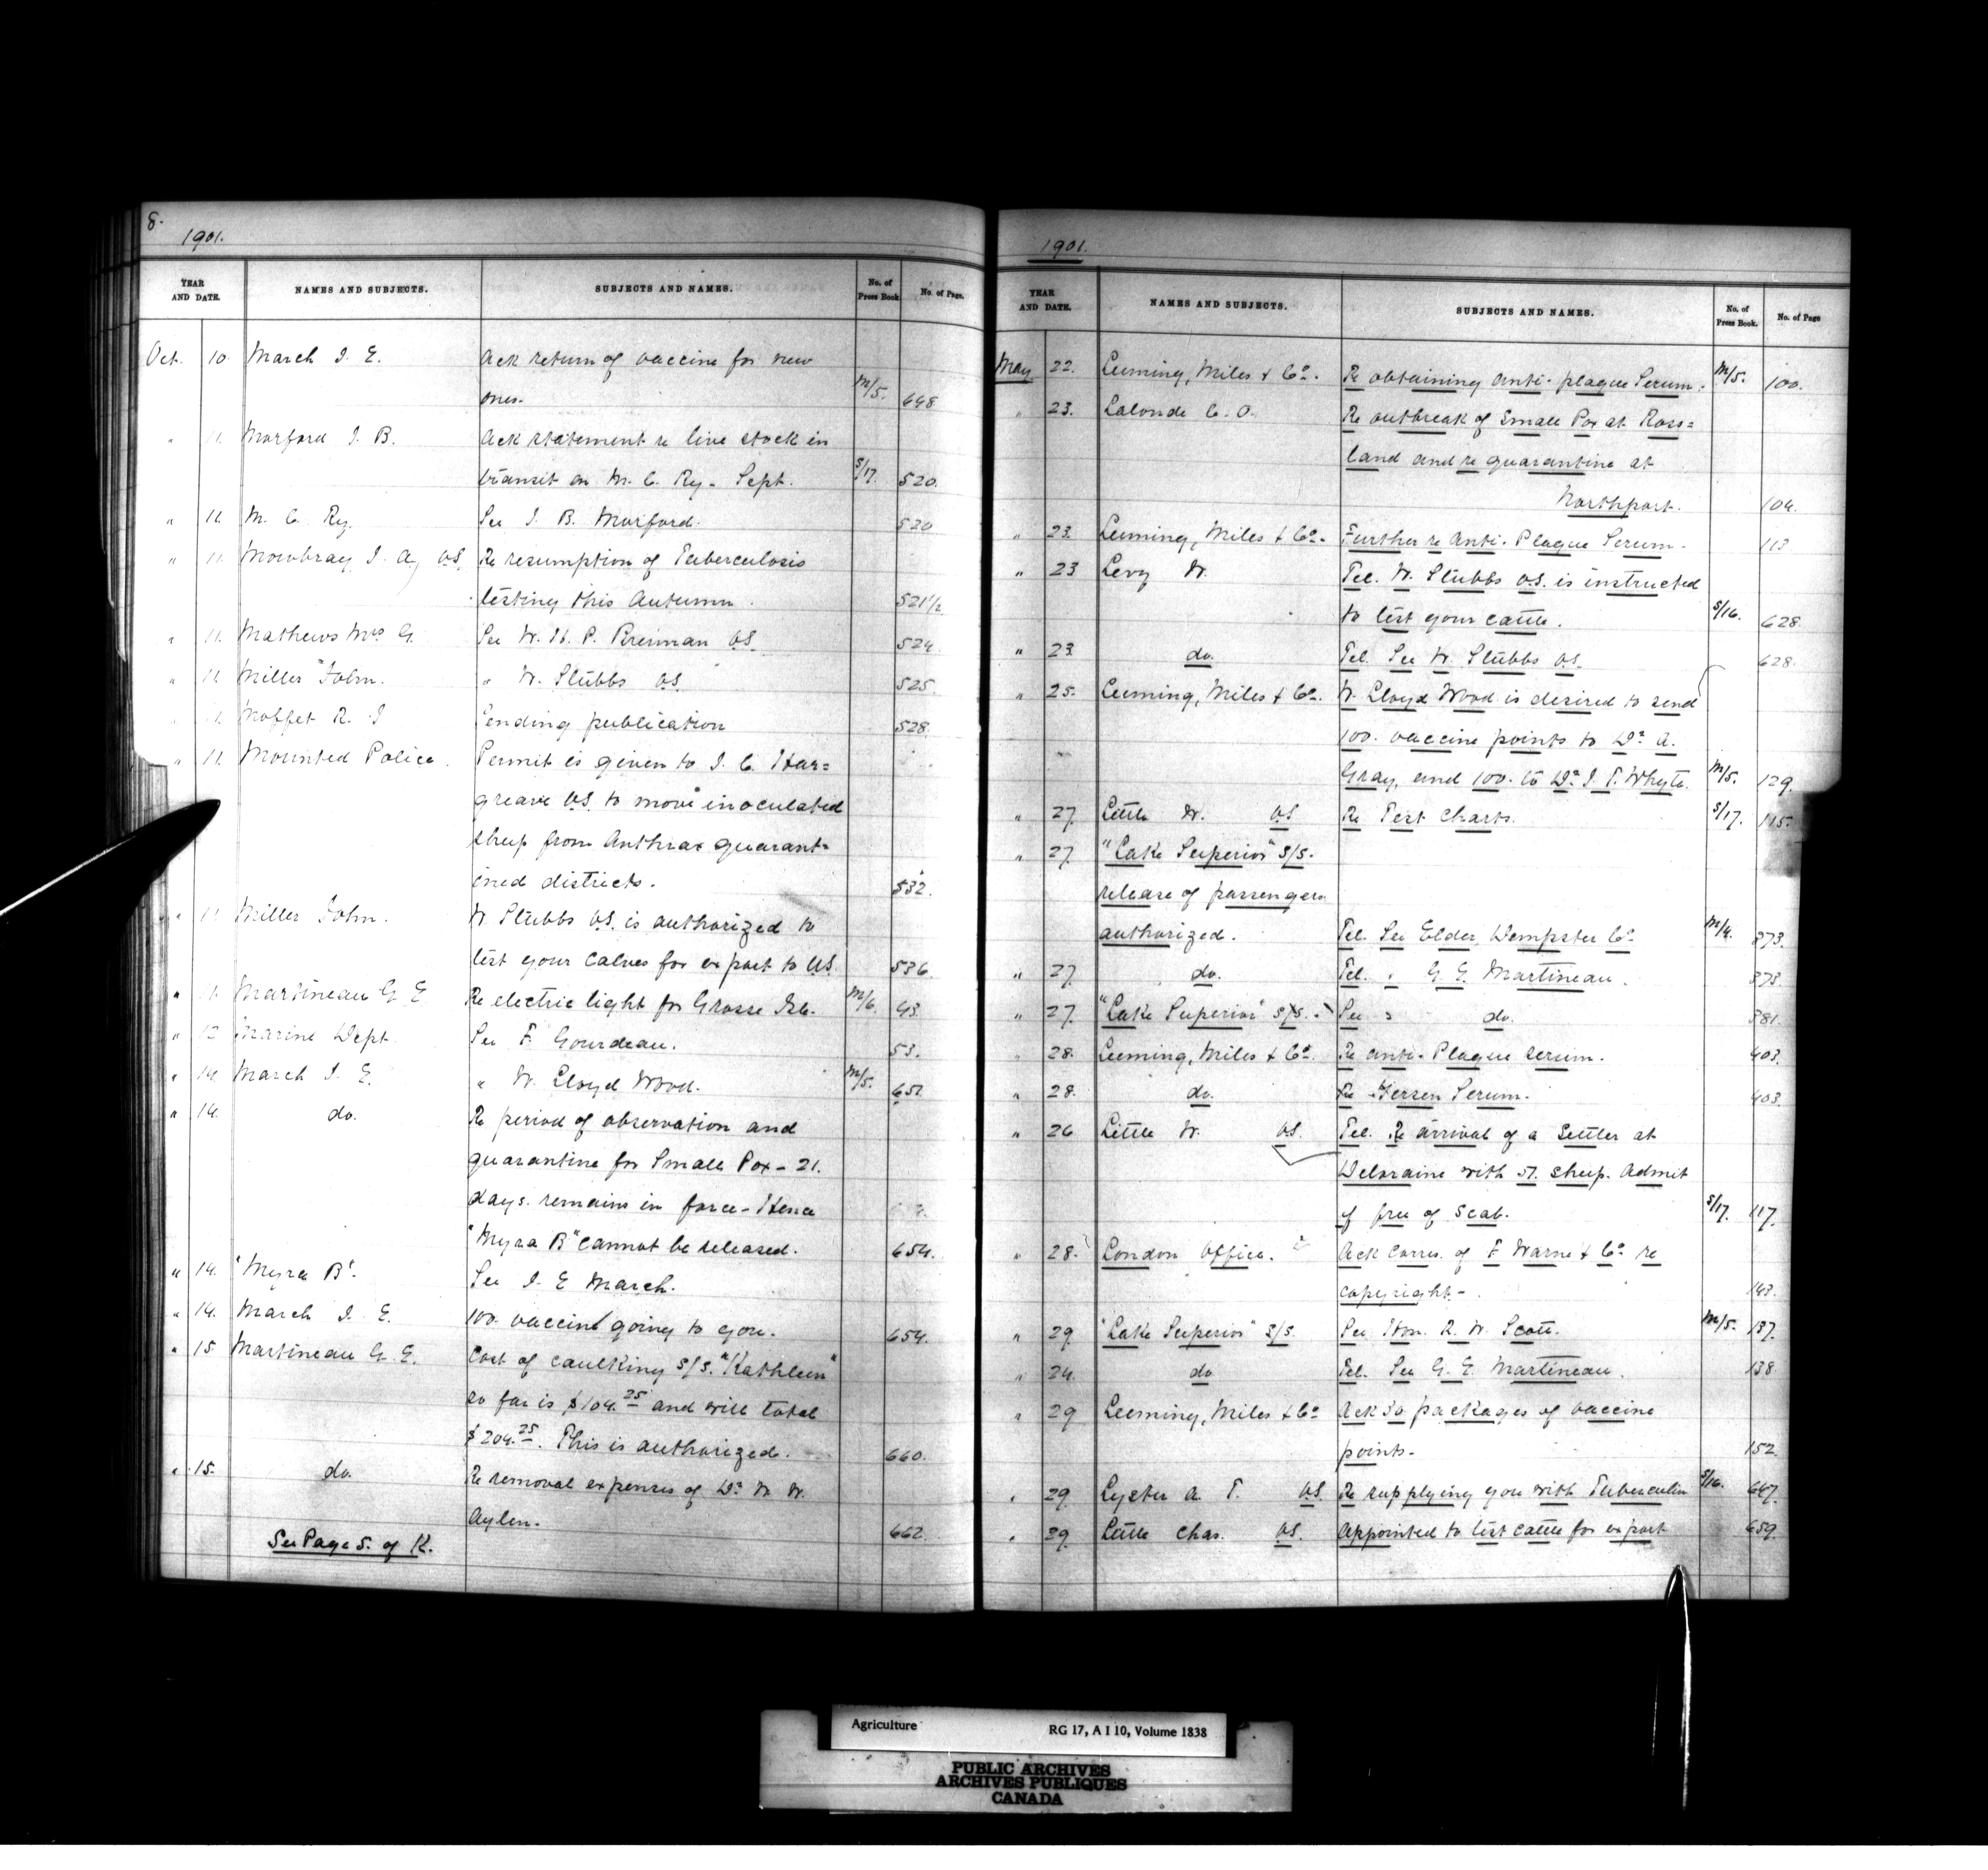 8.
1901.
YEAR AND DATE. NAMES AND SUBJECTS. SUBJECTS AND NAMES. No. of Press Book No. of Page.
Oct. 10. March J. E. Ack return of vaccine for new
ones. M/5. 648
" 11. Morford J. B. Ack statement re live stock in
transit on M. C. Ry. Sept. S/17. 520.
" 11. M. C. Ry. See J. B. Morford. 520
" 11. Mowbray J. A. V.S. Re resumption of Tuberculosis
testing this Autumn. 521½
" 11. Mathews Mrs G. See W. H. P. V.S. 524.
" 11. Miller John. " W. Stubbs V.S. 525.
" 11. Moffet R. J Sending publication 528.
" 11. Mounted Police. Permit is given to J. C. Har=
greave V.S. to move inoculated
sheep from Anthrax quarant=
ined districts. 532.
" 11 Miller John. W Stubbs V.S. is authorized to
test your Calves for export to U.S. 536
" 11. Martineau G. E Re electric light for Grosse Isle. M/6. 43.
" 12 Marine Dept. See F. Gourdeau. 53.
" 14 March J. E. " W. Lloyd Wood. M/5. 651.
" 14. do. Re period of observation and
quarantine for Small Pox - 21.
days. remains in force - Hence
"Myra B" cannot be released. 654.
" 14. "Myra B". See J. E March.
" 14. March J. E. 100. vaccine going to you. 654.
" 15 Martineau G. E. Cost of caulking s/s. "Kathleen"
so far is $104.25 and will total
$204.25. This is authorized. 660.
" 15. do. Re removal expenses of Dr W. W.
Aylen. 662.
See Page 5. of K.
1901.
YEAR AND DATE. NAMES AND SUBJECTS. SUBJECTS AND NAMES. No. of Press Book. No. of Page
May 22. Leeming, Miles & Co. Re obtaining Anti-plague Serum. M/5. 100.
" 23. Lalonde C. O. Re outbreak of Small Pox at Ross=
land and re quarantine at
Northport. 104.
" 23. Leeming, Miles & Co. Further re Anti-Plague Serum. 113
" 23 Levy W. Tel. W. Stubbs V.S. is instructed
to test your cattle. S/16. 628.
" 23. do. Tel. See W. Stubbs V.S. 628.
" 25. Leeming, Miles & Co. W. Lloyd Wood is desired to send
100. vaccine points to Dr A.
Gray, and 100. to Dr J. T. Whyte. M/5. 129.
" 27. Little W. V.S. Re Test Charts. S/17. 115.
" 27. "Lake Superior" s/s.
release of passengers
authorized. Tel. See Elder, Dempster Co. M/4. 373.
" 27. do. Tel. " G. E. Martineau. 373.
" 27. "Lake Superior" s/s. See " do. 381.
" 28. Leeming, Miles & Co. Re anti-Plague serum. 403.
" 28. do. Re Yersen Serum. 403.
" 26 Little W. V.S. Tel. Re arrival of a Settler at
Deloraine with 51. sheep. Admit
if free of Scab. S/17. 117.
" 28. London Office. Ack Corres. of F Warne & Co re
copyright. 143.
" 29 "Lake Superior" s/s. See Hon. R. W. Scott. M/5. 137.
" 24. do Tel. See G. E. Martineau. 138
" 29 Leeming, Miles & Co Ack 30 packages of vaccine
points. 152.
" 29 Lyster A. T. V.S. Re supplying you with Tuberculin S/16. 647.
" 29. Little Chas. V.S. Appointed to test cattle for export 659.
Agriculture RG 17, A I 10, Volume 1838
PUBLIC ARCHIVES
ARCHIVES PUBLIQUES
CANADA